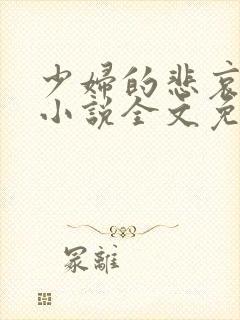 少婦的悲哀
小説全文免
冢離